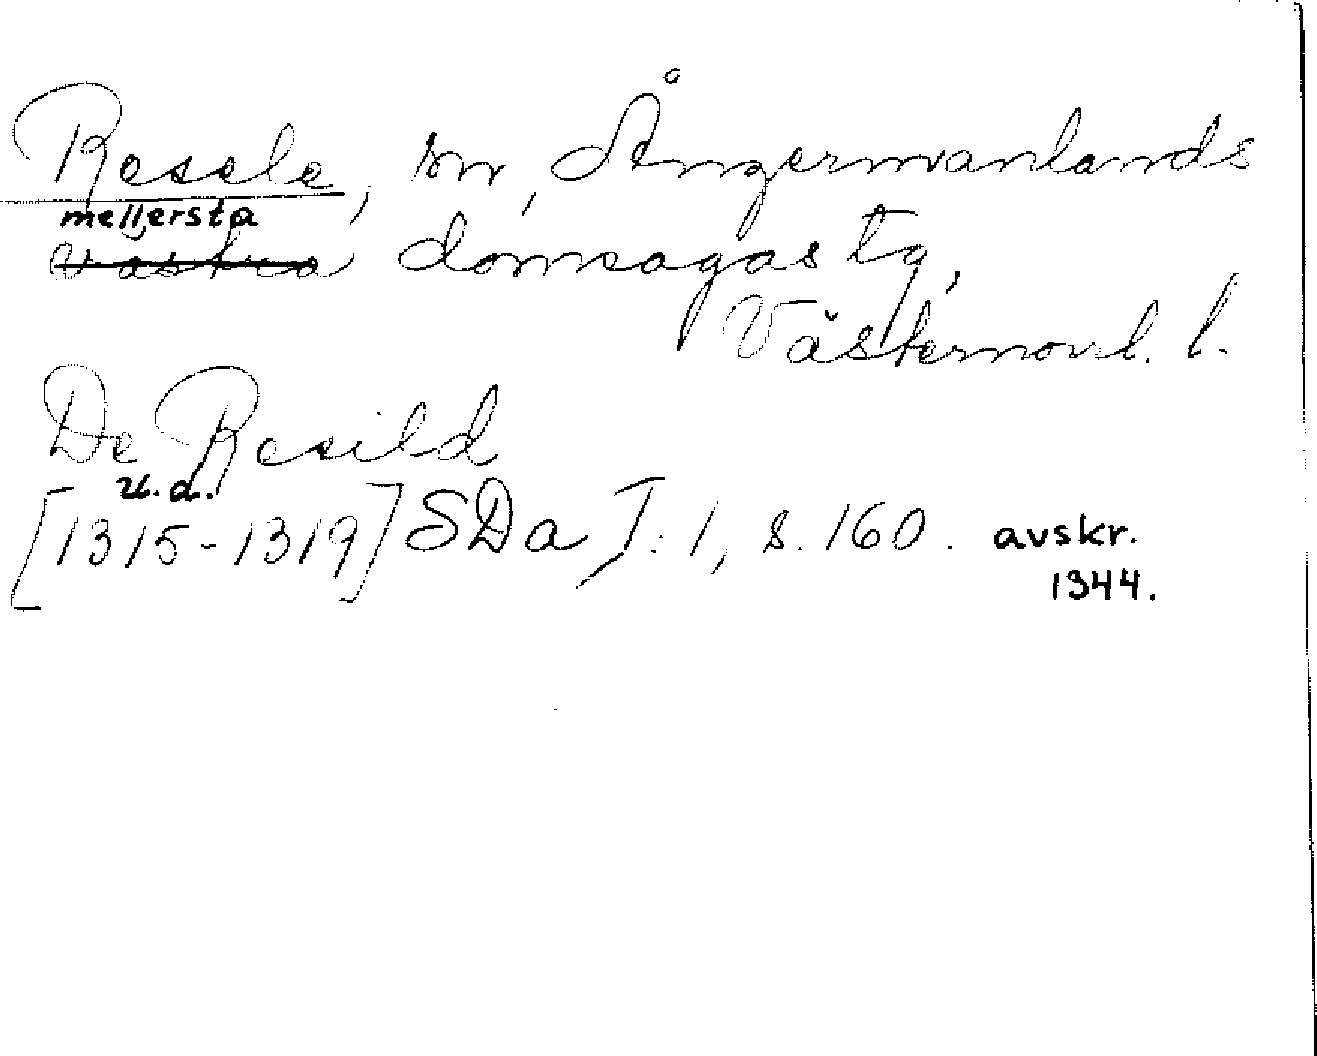 Resele, sn, Ångermanlands
mellersta
västra domsagas tg,
Västernorrl. l.
De Resild
u.d.
[1315-1319] SDa I:1, s. 160. avskr.
1344.